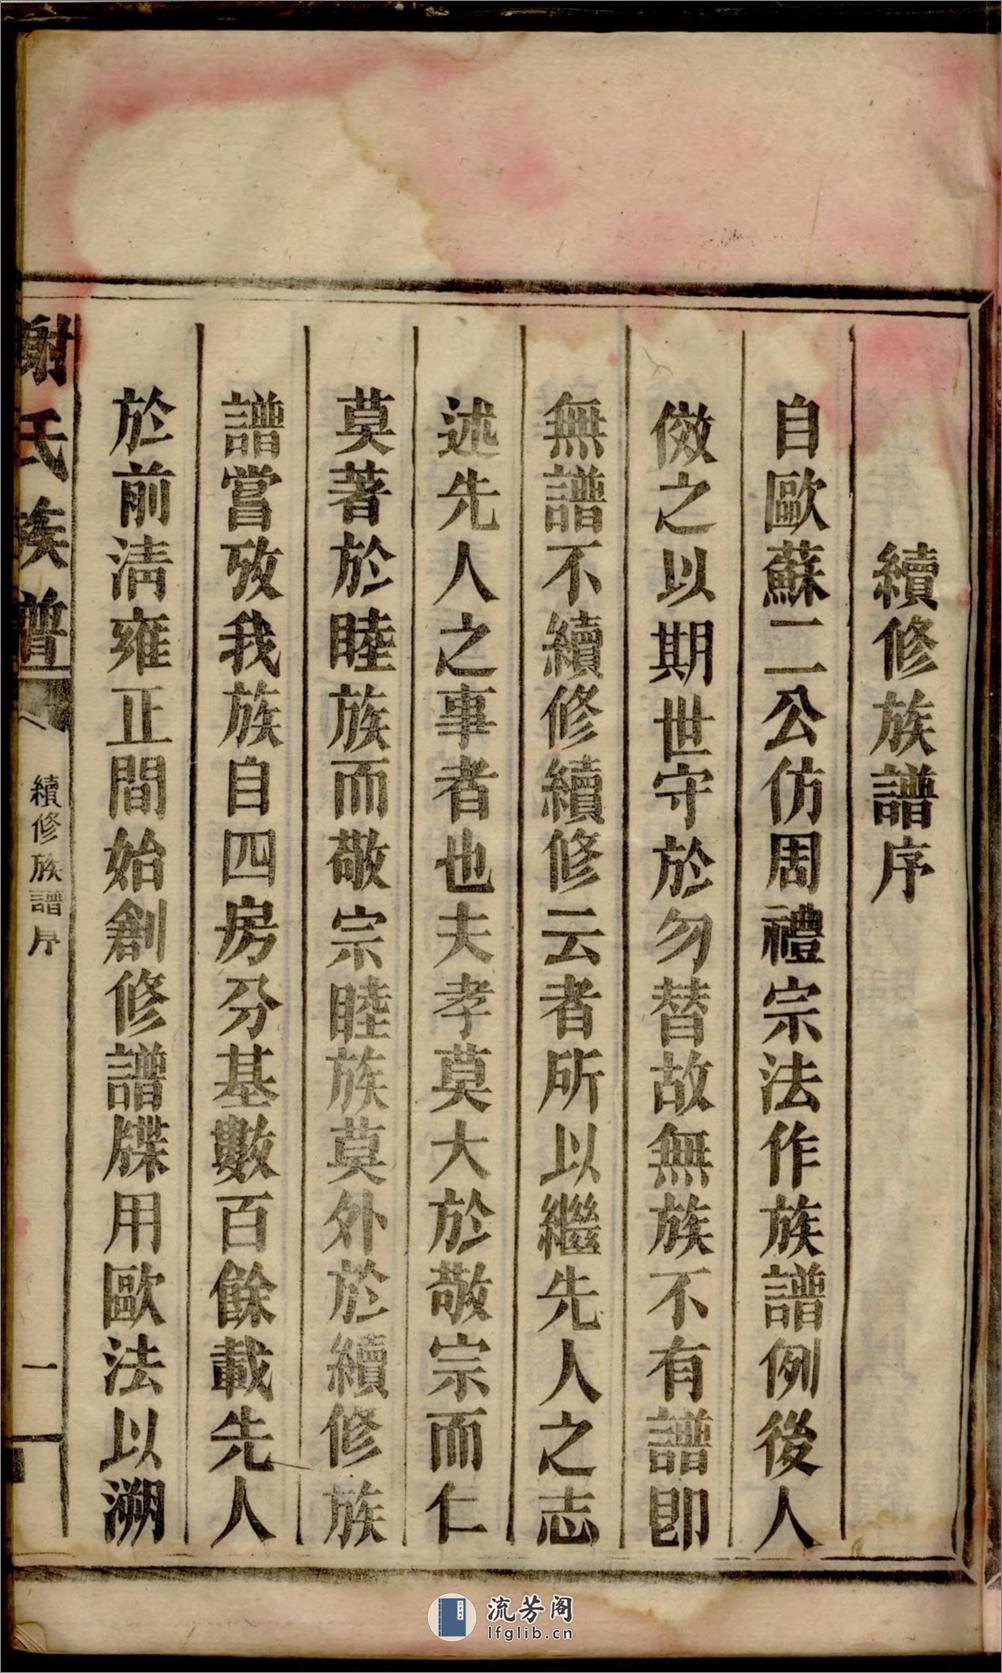 續修族譜序
自歐蘇二公仿周禮宗法作族譜例後人
倣之以期世守於勿替故無族不有譜卽
無譜不續修續修云者所以繼先人之志
述先人之事者也夫孝莫大於敬宗而仁
莫著於睦族而敬宗睦族莫外於續修族
譜嘗攷我族自四房分基數百餘載先人
於前清雍正間始創修譜牒用歐法以溯
謝氏族譜
續修族譜序
一
流芳阁
lfglib.cn